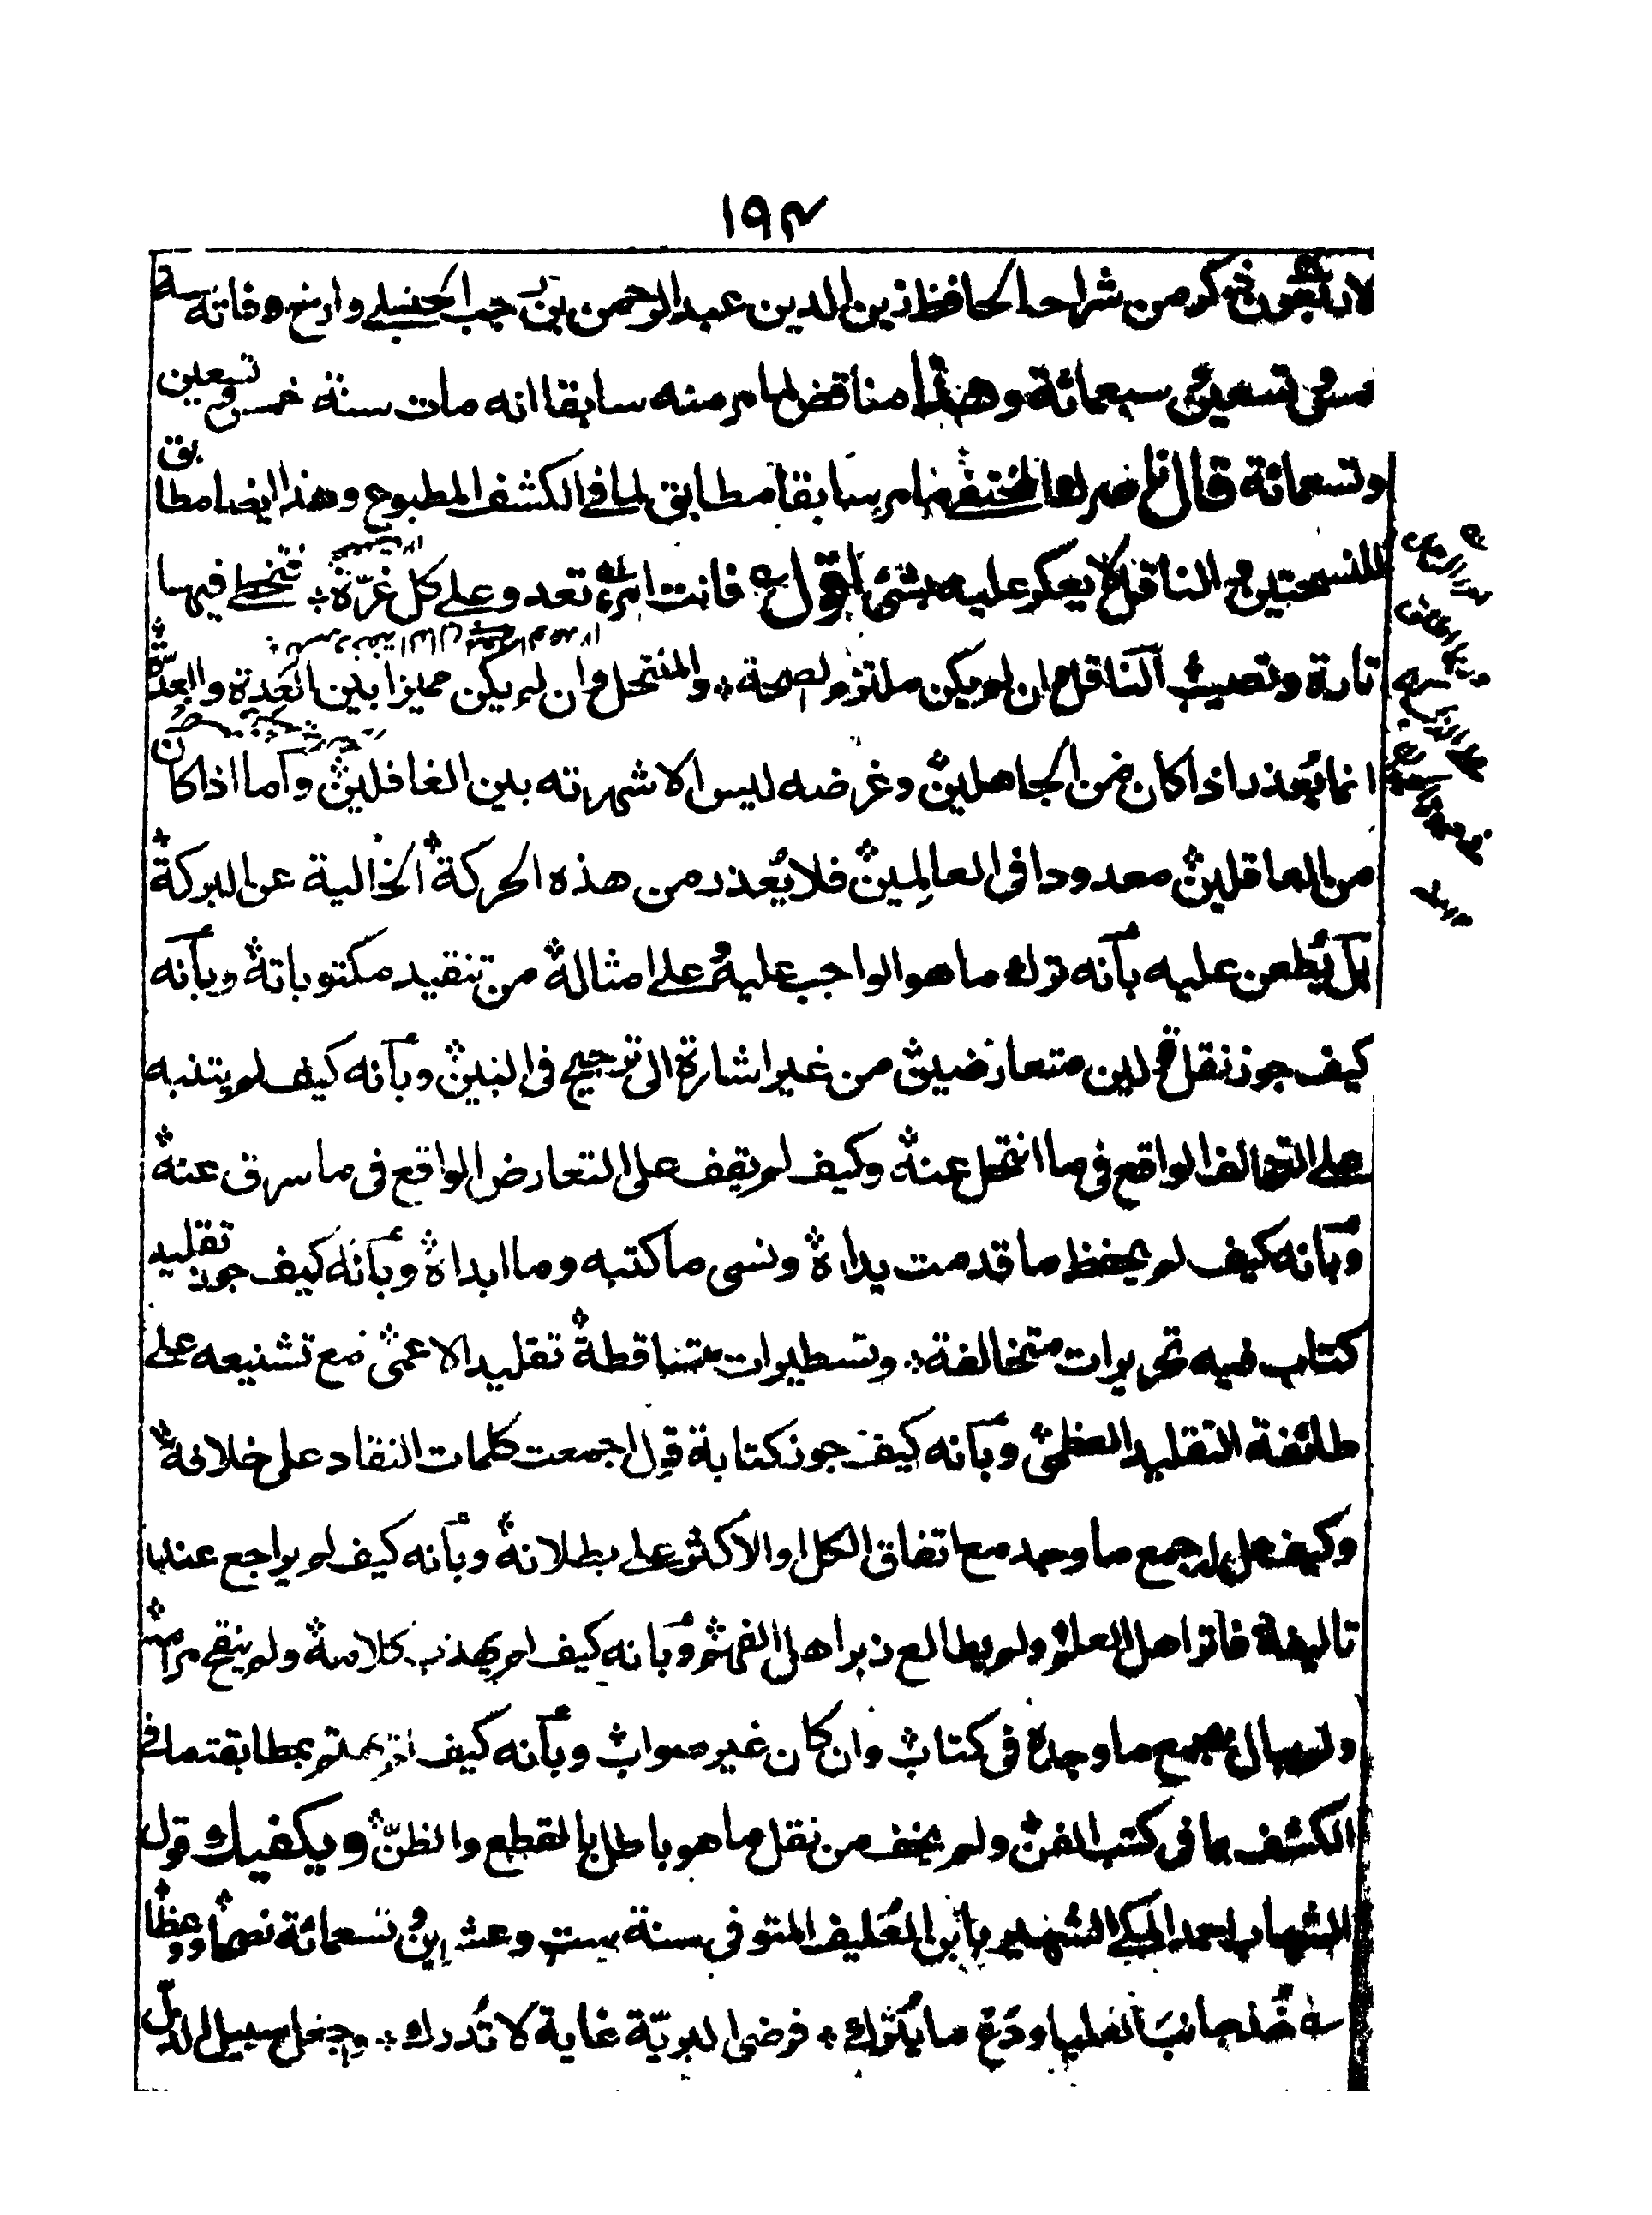 ١٩٣
ذكر من شراحه الحافظ زين الدين عبد الرحمن بن رجب الحنبلي وارخ وفاته سنة
خمس وتسعين سبعمائة وهذا مناقض لما مر منه سابقا انه مات سنة خمس وتسعين
وتسعمائة قال ناصرك المختفي ما مر سابقا مطابق لما في الكشف المطبوع وهذا ايضا مطابق
للنسختين والناقل لا يعكر عليه بشئ اقول فانت امرء تعدو على كل غرّة ÷ فتخطي فيها
تارة وتصيب الناقل وان لم يكن ملتزم الصحة ÷ والمنتحل وان لم يكن مميزا بين
انما يُعذر اذا كان من الجاهلين وغرضه ليس الا شهرته بين الغافلين وأما اذا كان
من العاقلين معدودا في العالمين فلا يُعذر من هذه الحركة الخالية عن البركة
بل يُطعن عليه بأنه ترك ما هو الواجب عليه وعلى امثاله من تنقيد مكتوباته وبأنه
كيف جوز نقل قولين متعارضين من غير اشارة الى ترجيح في البين وبأنه كيف لم يتنبه
على التخالف الواقع في ما انتحل عنه وكيف لم يقف على التعارض الواقع في ما سرق عنه
وبأنه كيف لم يحفظ ما قدمت يداه ونسى ما كتبه وما ابداه وبأنه كيف جوز تقليد
كتاب فيه تحريرات متخالفة ÷ وتسطيرات متساقطة تقليد الاعمى مع تشنيعه على
طائفة التقليد العظمى وبأنه كيف جوز كتابة قول اجمعت كلمات النقاد على خلافه
وكيف جمع ما وجد مع اتفاق الكل او الاكثر على بطلانه وبأنه كيف لم يراجع عند
تاليفه دفاتر اهل العلم ولم يطالع زبر اهل الفهم وبأنه كيف لم يهذب كلامه ولم ينقح مرامه
ولم يبال بجمع ما وجده في كتاب وان كان غير صواب وبأنه كيف لم يهتم بمطابقة ما في
الكشف بما في كتب الفن ولم يخف من نقل ما هو باطل بالقطع والظنّ ويكفيك قول
الشهاب احمد المكي الشهير بابن العُليف المتوفى سنة ست وعشرين وتسعمائة نصحا ووعظا
ـه خُذ جانبَ العليا ودَع ما يُترك ÷ فرضى البريّة غاية لا تُدرك ÷ واجعل سبيل الذل